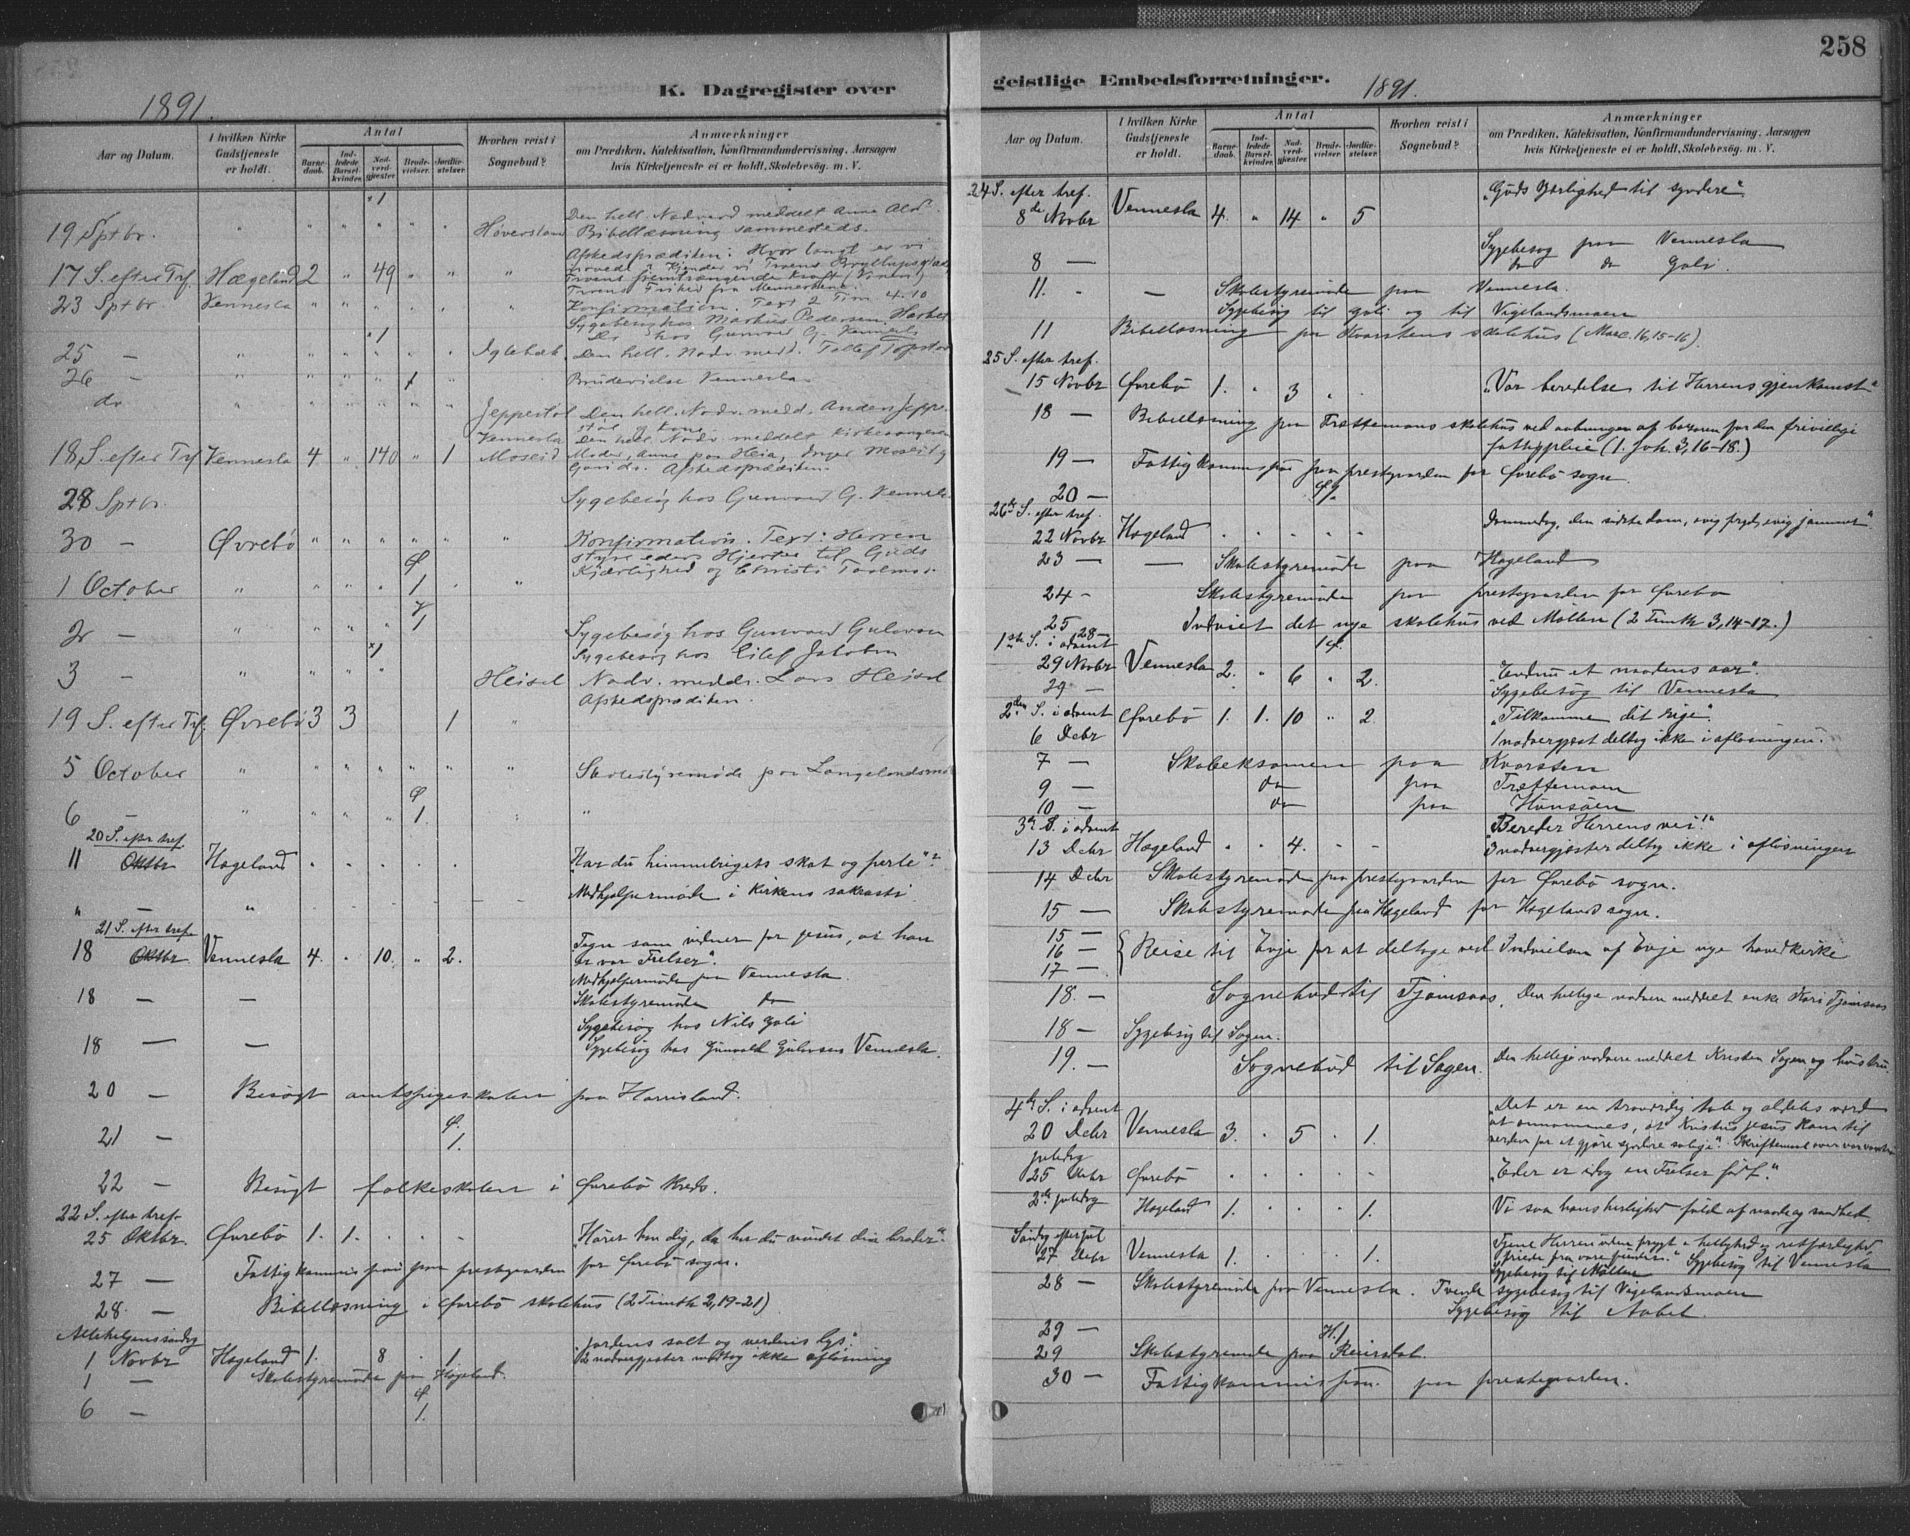 258
K. Dagregister over
geistlige Embedsforretninger.
1891.
1891.
Aar og Datum.
I hvilken Kirke Gudstjeneste er holdt.
Antal
Barnedaab.
Indledede Barselkvinder.
Nadverdgjæster.
Brudevielser.
Jordfæstelser.
Hvorhen reist i Sognebud?
Anmærkninger
om Prædiken, Katekisation, Konfirmandundervisning, Aarsagen
hvis Kirketjeneste ei er holdt, Skolebesøg. m. V.
19 Sptbr. " " " "1 " " Høversland Den hell. Nadverd meddelt Anne
Bibellæsning sammesteds.
17 S. efter Trf. Hægeland 2 " 49 " " " Afskedsprædiken: Hvor langt er vi
23 Sptbr. Vennesla Konfirmation. Text 2 Tim 4.10
Sygebesøg hos Markus Pedersen
Do hos Gunvald G. Vennesla
25 — " " " "1 " " Iglebæk Den hell. Nadv. medd. Tollef
26 — " " " " 1 " Brudevielse Vennesla
do Jeppestøl Den hell. Nadv. medd. Anders Jeppe-
støl og Kone
Vennesla Den hell. Nadv. meddelt Kirkesangeren
18 S. efter Trf Vennesla 4 " 140 " 1 Moseid Moder, Anne paa Heia, Moseid
Afskedsprædiken
28 Sptbr. Sygebesøg hos Gunvald G. Vennesla
30 — Øvrebø " " " " " " Konfirmation. Text: Herren
styre eders Hjerter til Guds
Kjærlighed og Christi Taalmod.
1 October " " " " Ø 1 " "
2 — " " " " V 1 Sygebesøg hos Gunvald Gulovsen
Sygebesøg hos Eilef Jakobsen
3 — " " " "1 " Heisel Nadv. meddt. Lars Heisel
Afskedsprædiken.
19 S. efter Trf. Øvrebø 3 3 1 "
5 October " " " " " " " Skolestyremøde paa Langelandsmo
6 — " " " " Ø 1. "
20 S. efter tref.
11 Oktbr Hægeland . . . . . "Har du himmelrigets skat og perle"?
" — " Medhjælpermøde i Kirkens sakristi
21 S. efter tref.
18 Oktbr Vennesla 4. " 10. " 2. Tegn som vidner for Jesus, at han
er vor Frelser".
Medhjælpermøde paa Vennesla.
18 — — Skolestyremøde do
Sygebesøg hos Nils Gali
18 — — Sygebesøg hos Gunvald Gulovsen Vennesla.
20 — Besøgt amtspigeskolen paa Harrisland.
21 — Ø. 1.
22 — Besøgt folkeskolen i Øvrebø Kreds.
22 S. efter tref.
25 Oktbr. Øvrebø 1. 1. . . . "Hører han dig, da har du vundet din broder".
27 — Fattigkommission paa prestegaarden for Øvrebø sogn.
28. — Bibellæsning i Øvrebø skolehus (2 Timoth 2,19-21)
Allehelgenssøndag
1 Novbr Hægeland 1. 8 . 1. "Jordens salt og verdens lys".
2 nadvergjester modtog ikke afløsning
1 — Skolestyremøde paa Hægeland.
6 — Ø 1.
Aar og Datum.
I hvilken Kirke Gudstjeneste er holdt.
Antal
Barnedaab.
Indledede Barselkvinder.
Nadverdgjæster.
Brudevielser.
Jordfæstelser.
Hvorhen reist i Sognebud?
Anmærkninger
om Prædiken, Katekisation, Konfirmandundervisning, Aarsagen
hvis Kirketjeneste ei er holdt, Skolebesøg. m. V.
24 S. efter tref.
8de Novbr Vennesla 4. " 14 " 5 "Guds kjærlighed til syndere".
8 — Sygebesøg paa Vennesla
do do Gali.
11. - — Skolestyremøde paa Vennesla.
Sygebesøg til Gali og til Vigelandsmoen
11 Bibellæsning paa Kvarstens skolehus (Marc. 16,15-16).
25 S. efter tref.
15 Novbr Øvrebø 1. " 3 " . "Vor beredelse til Herrens gjenkomst"
18 — Bibellæsning paa Trættemoens skolehus ved aabningen af bazaren for den frivillige
fattigpleie (1. Joh. 3,16-18.)
19 — Fattigkommission paa prestegaarden for Øvrebø sogn.
20 — Ø
26de S. efter tref.
22 Novbr Hægeland . . . . . Dommedag, den sidste dom, evig fryd, evig jammer"
23 — — Skolestyremøde paa Hægeland
24 - Skolestyremøde paa prestegaarden for Øvrebø
25 Indviet det nye skolehus ved Møllen (2 Timoth 3,14-17.)
28 — 1 Ø.
1ste S. i advent
29 Novbr Vennesla 2. " 6 " 2. "Endnu et naadens aar".
29 — Sygebesøg til Vennesla
2den S. i advent
6 Debr Øvrebø 1. 1. 10 " 2. "Tilkomme dit rige".
1 nadvergjest deltog ikke i afløsningen.
7 — Skoleeksamen paa Kvarsten
9 — do paa Trættemoen
10 — do paa Hunsøen
3de S. i advent
13 Debr Hægeland " " 4. - - "Bereder Herrens vei!"
3 nadvergjester deltog ikke i afløsningen
14 Debr Skolestyremøde paa prestegaarden for Øvrebø sogn.
15 — Skolestyremøde paa Hægeland for Hægeland sogn.
15 —
16 — Reise til Evje for at deltage ved Indvielsen af Evje nye hovedkirke
17 —
18. — Sognebud til Tjomsaas. Den hellige nadvere meddelt enke Kari Tjomsaas
18 — Sygebesøg til Sagen.
19. — Sognebud til Sagen. Den hellige nadvere meddelt Kristen Sagen og hustru.
4de S. i advent
20 Debr Vennesla 3. " 5 " 1. "Det er en troværdig tale og aldeles værd
at annammes, at Kristus Jesus kom til
verden for at gjøre syndere salige".
juledag
25 Debr Øvrebø . . . . - "Eder er idag en Frelser født".
2de juledag
Hægeland 1. . . . 1. Vi saa hans herlighed fuld af naade og sandhed.
Søndag efter jul
27 Debr Vennesla 1. . . . 1. Tjene Herren uden frygt i hellighed og retfærdighed,
friede fra vore fienders". Sygebesøg til Vennesla
Sygebesøg til Møllen
28 — Skolestyremøde paa Vennesla. Tvende sygebesøg til Vigelandsmoen
Sygebesøg til Aabel.
29 — H. 1
29 Skolestyremøde paa Reiersdal.
30 — Fattigkommission paa prestegaarden.